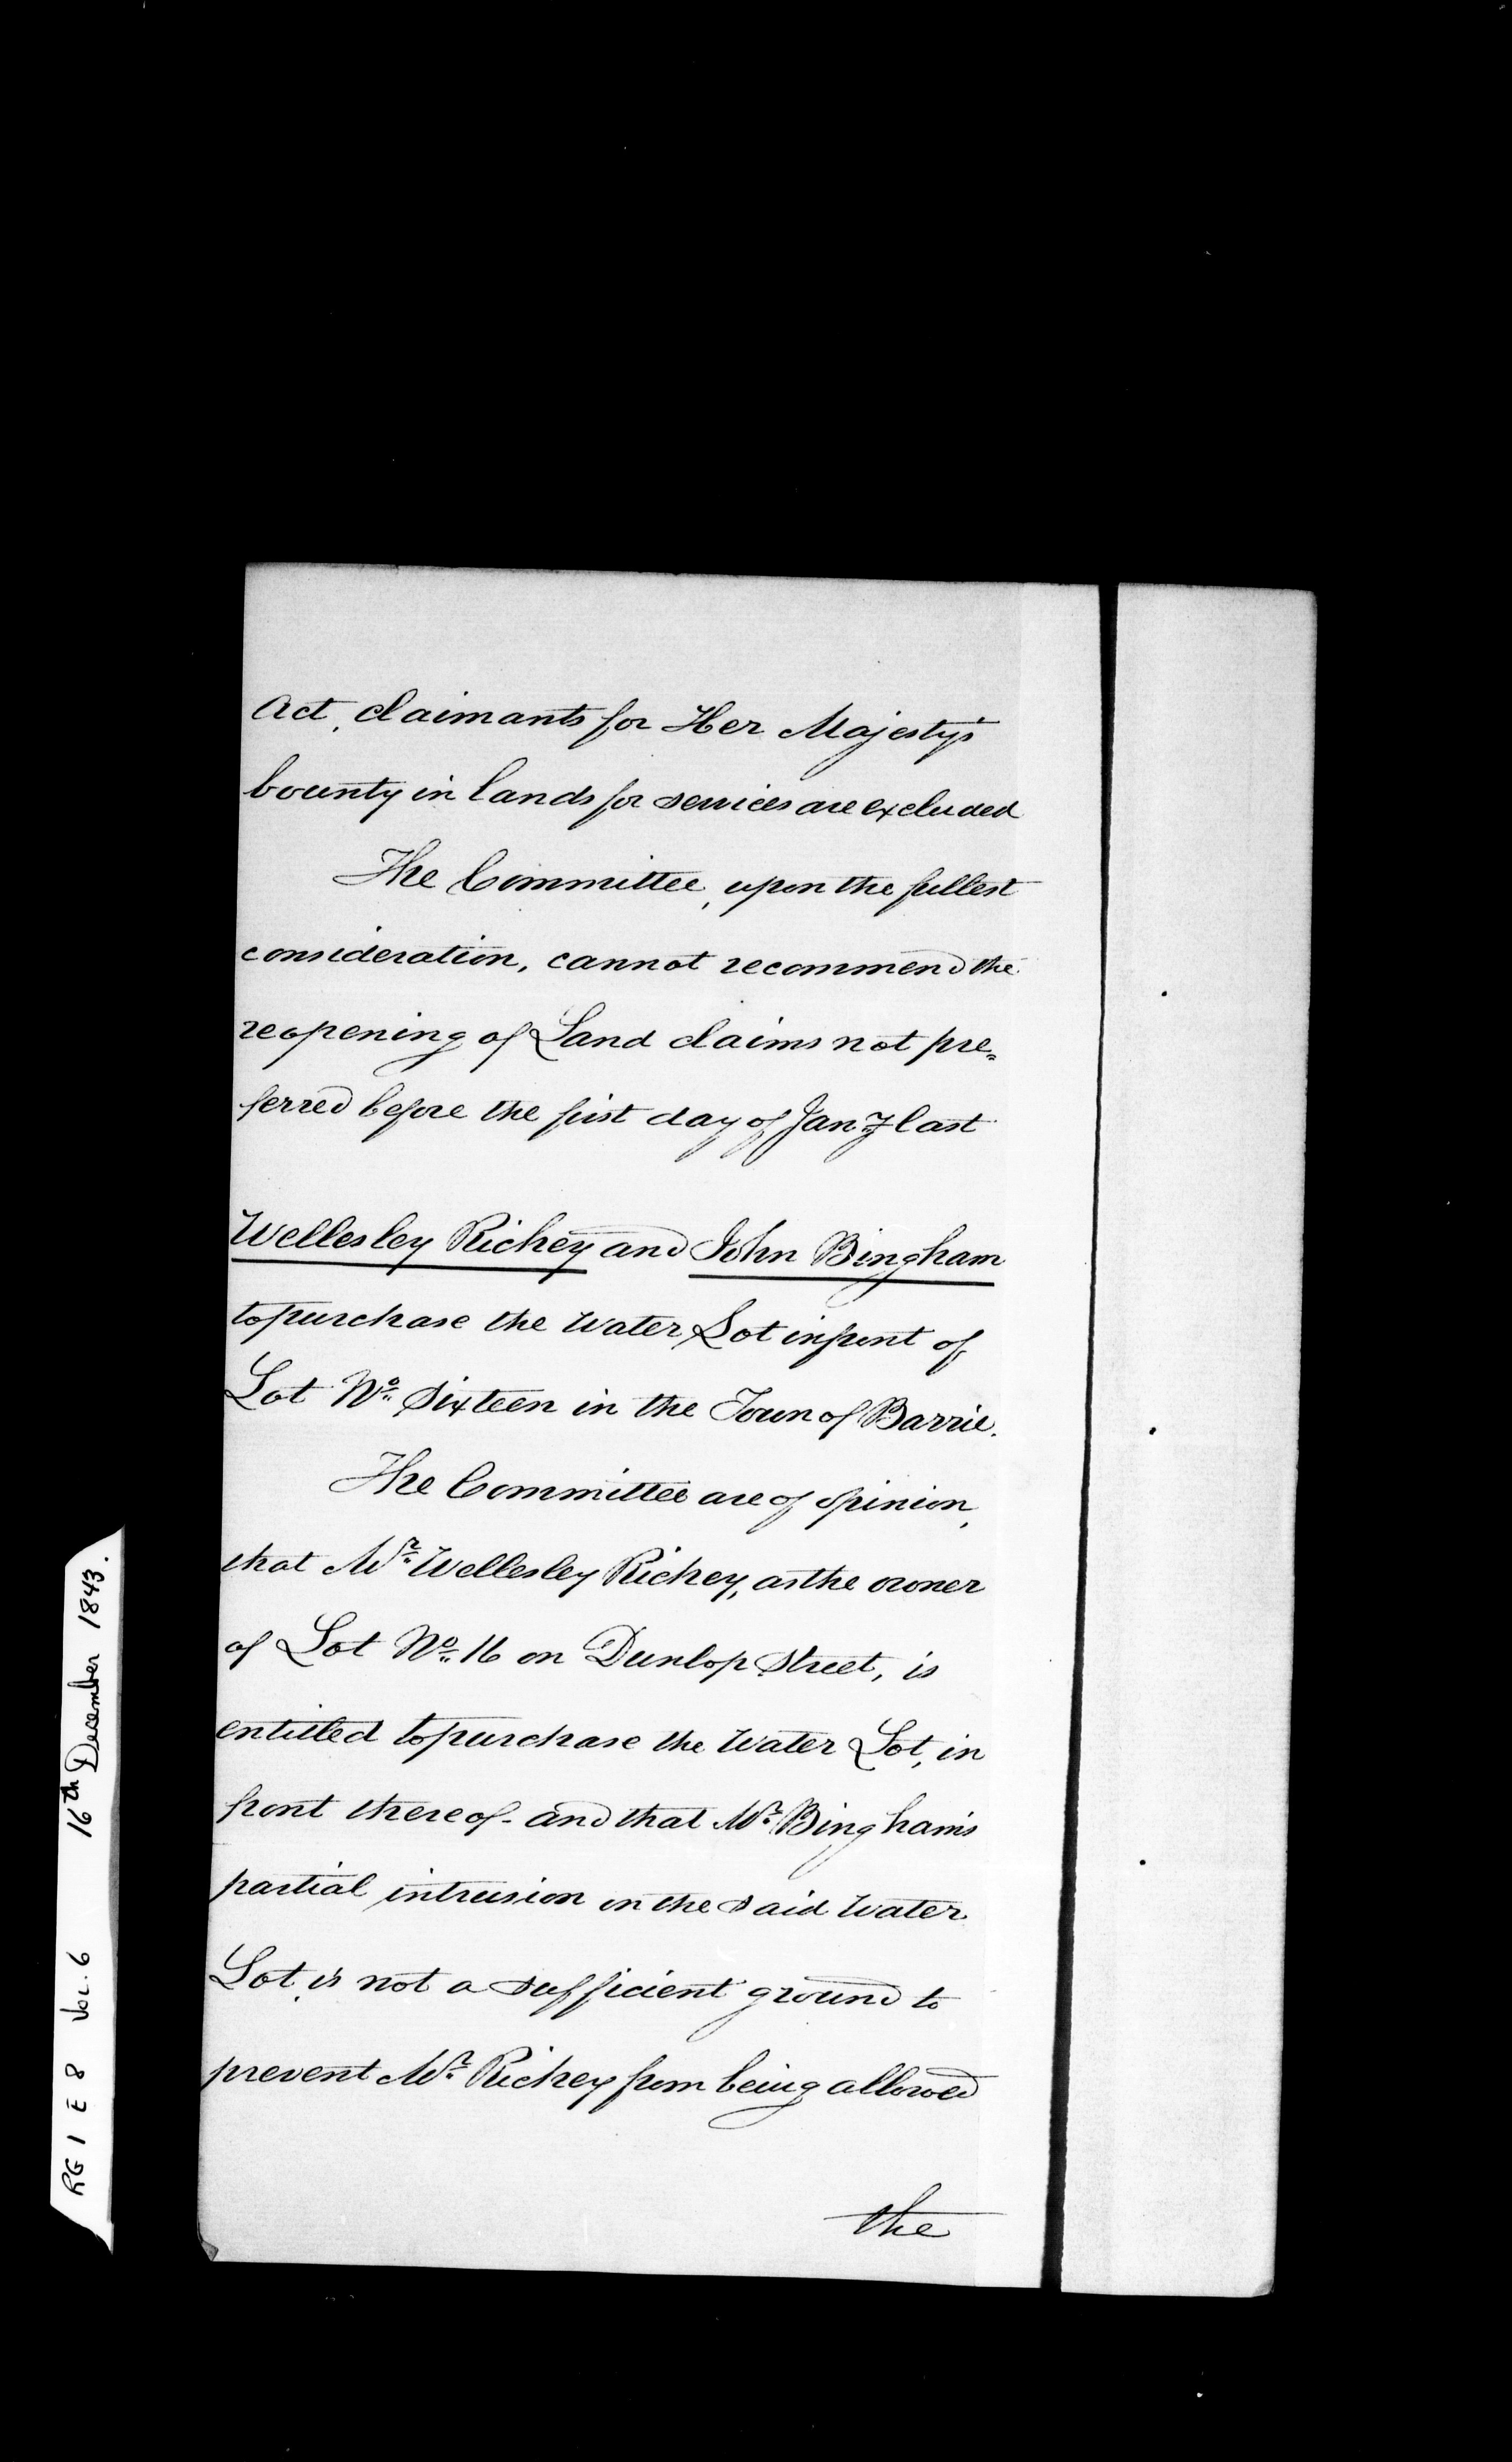 Act, claimants for Her Majesty's
bounty in lands for services are excluded
The Committee, upon the fullest
consideration, cannot recommend the
reopening of Land claims not pre=
ferred before the first day of Jan.y last
Wellesley Richey and John Bingham
to purchase the Water Lot in front of
Lot No. Sixteen in the Town of Barrie.
The Committee are of opinion,
that Mr. Wellesley Richey, as the owner
of Lot No. 16 on Dunlop Street, is
entitled to purchase the Water Lot, in
front thereof - and that Mr. Bingham's
partial intrusion on the said Water
Lot, is not a sufficient ground to
prevent Mr. Richey from being allowed
the
RG 1 E 8 Vol. 6 16th December 1843.